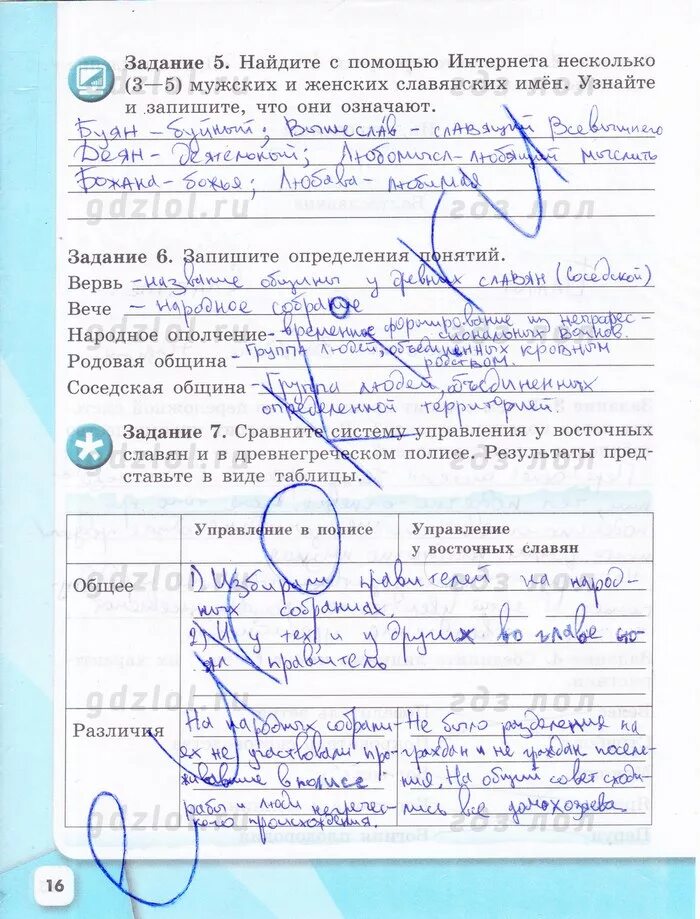 Задание 5. Найдите с помощью Интернета несколько
(3—5) мужских и женских славянских имён. Узнайте
и запишите, что они означают.
Буян – буйный; Вышеслав – славящий Всевышнего
Деян – деятельный; Любомысл – любящий мыслить
Божана – божья; Любава – любимая
gdzlol.ru
гдз лол
Задание 6. Запишите определения понятий.
Вервь – название общины у древних славян (соседской)
Вече – народное собрание
Народное ополчение – временное формирование из непрофес-
сиональных воинов.
Родовая община – группа людей, объединенных кровным
родством.
Соседская община – группа людей, объединенных
определенной территорией.
Задание 7. Сравните систему управления у восточных
славян и в древнегреческом полисе. Результаты пред-
ставьте в виде таблицы.
Управление в полисе
Управление
у восточных славян
Общее
1) Избирали правителей на народ-
ных собраниях.
2) И у тех и у других во главе сто-
ял правитель
gdzlol.ru
гдз лол
Различия
На народных собрани-
ях не участвовали про-
живавшие в полисе
рабы и люди негречес-
кого происхождения.
Не было разделения на
граждан и не граждан поселе-
ния. На общий совет сходи-
лись все домохозяева.
gdzlol.ru
гдз лол
16